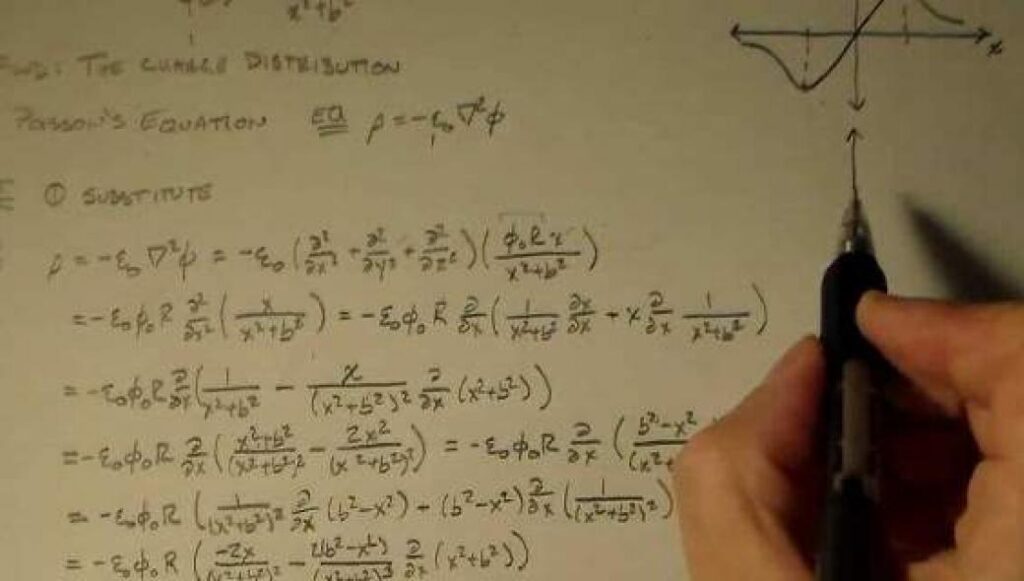 x²+b²
x
FIND: THE CHARGE DISTRIBUTION
POISSON'S EQUATION EQ ρ = -ε₀∇²φ
① SUBSTITUTE
ρ = -ε₀∇²φ = -ε₀(∂²/∂x² + ∂²/∂y² + ∂²/∂z²)(φ₀Rx/x²+b²)
= -ε₀φ₀R ∂²/∂x²(x/x²+b²) = -ε₀φ₀R ∂/∂x(1/x²+b² ∂x/∂x + x ∂/∂x 1/x²+b²)
= -ε₀φ₀R ∂/∂x(1/x²+b² - x/(x²+b²)² ∂/∂x (x²+b²))
= -ε₀φ₀R ∂/∂x(x²+b²/(x²+b²)² - 2x²/(x²+b²)²) = -ε₀φ₀R ∂/∂x(b²-x²/(x²+
= -ε₀φ₀R(1/(x²+b²)² ∂/∂x (b²-x²) + (b²-x²) ∂/∂x(1/(x²+b²)²)
= -ε₀φ₀R(-2x/(x²+b²)² - 2(b²-x²)/(x²+b²)³ ∂/∂x (x²+b²))